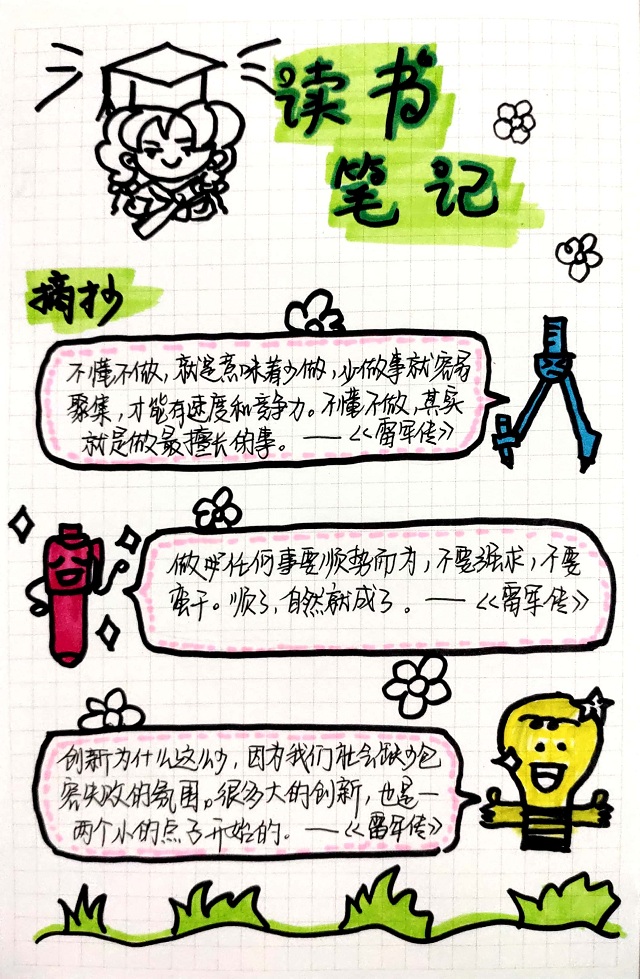 读书
笔记
摘抄
不懂不做，就是意味着少做，少做事就容易
聚集，才能有速度和竞争力。不懂不做，其实
就是做最擅长的事。——《雷军传》
做任何事要顺势而为，不要强求，不要
蛮干。顺了，自然就成了。——《雷军传》
创新为什么这么少，因为我们社会缺少包
容失败的氛围。很多大的创新，也是一
两个小的点子开始的。——《雷军传》